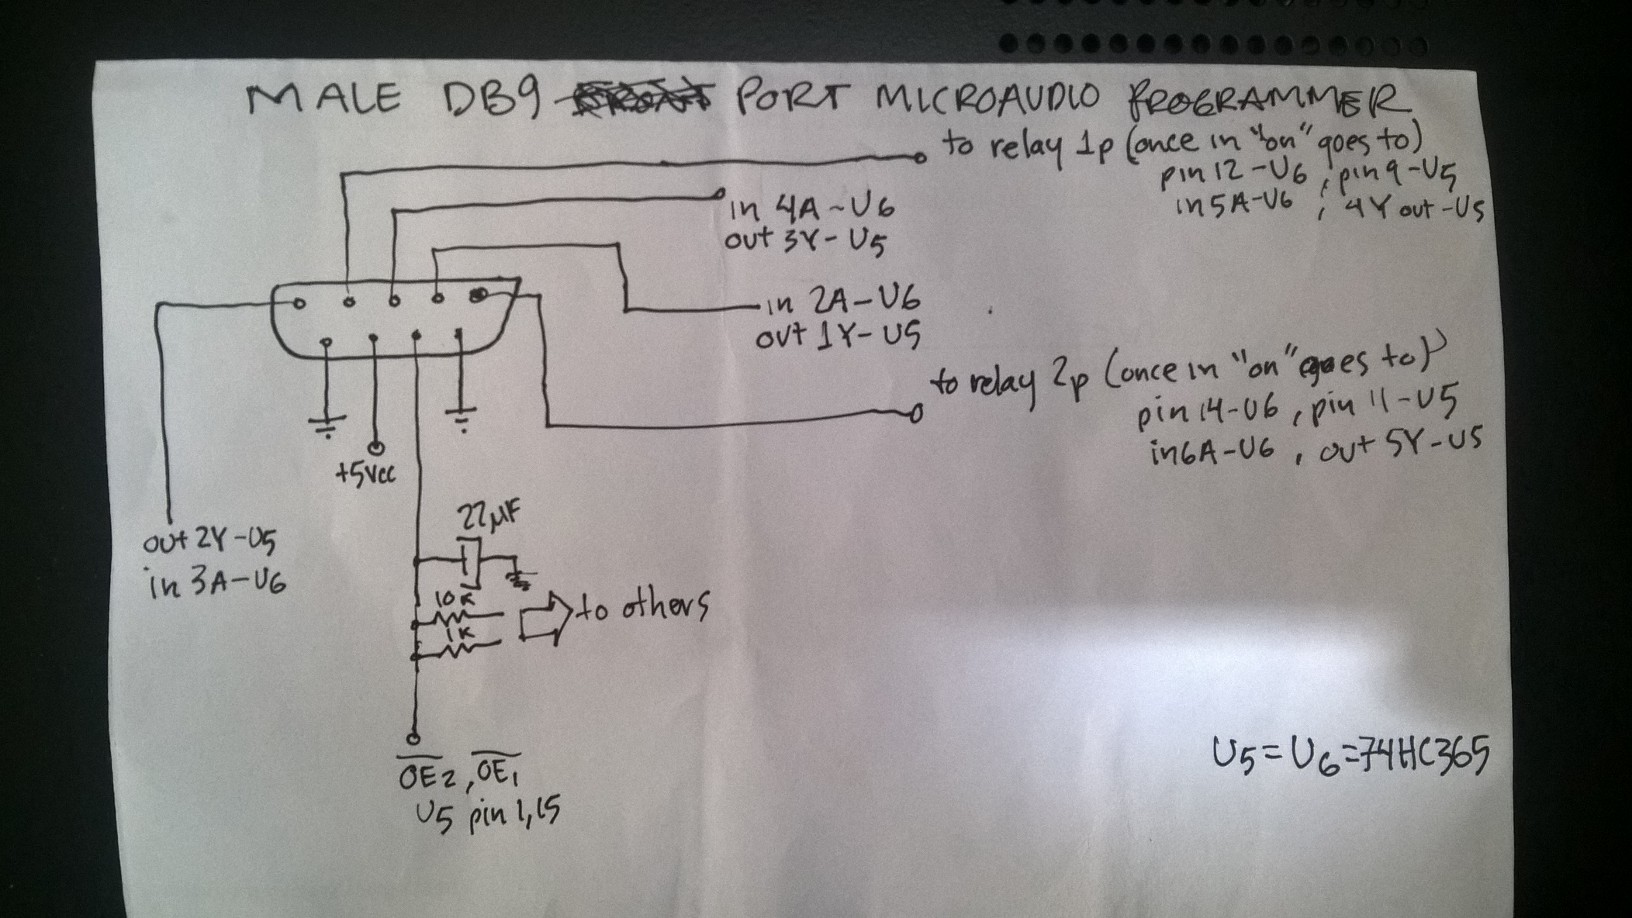 MALE DB9 PORT MICROAUDIO PROGRAMMER
to relay 1p (once in "on" goes to)
pin 12 - U6 , pin 9 - U5
in 5A - U6 , 4Y out - U5
in 4A - U6
out 3Y - U5
in 2A - U6
out 1Y - U5
to relay 2p (once in "on" goes to)
pin 14 - U6 , pin 11 - U5
in 6A - U6 , out 5Y - U5
+5Vcc
out 2Y - U5
in 3A - U6
22µF
10K
1K
to others
O̅E̅2 , O̅E̅1
U5 pin 1,15
U5 = U6 = 74HC365